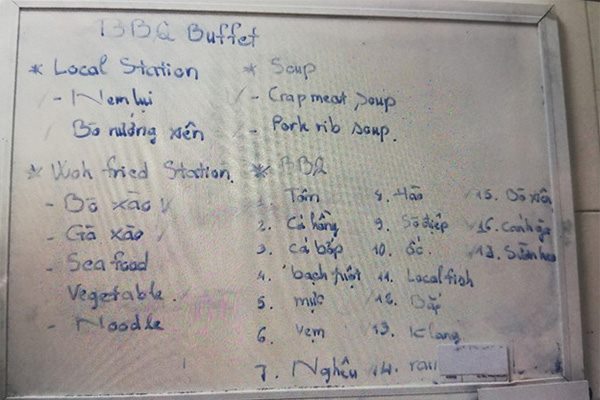 BBQ Buffet
* Local Station
- Nem lụi
Bò nướng xiên
* Soup
- Crapmeat soup
- Pork rib soup.
* Woh fried Station.
- Bò xào
- Gà xào
- Seafood
Vegetable.
- Noodle
* BBQ
1. Tôm
2. Cá hồng
3. cá bớp
4. bạch tuột
5. mực
6. Vẹm
7. Nghêu
8. Hào
9. Sò điệp
10. ốc
11. Local fish
12. Bắp
13. k lang
14.
15. Bò xiên
16. Cánh gà
17. Sườn heo